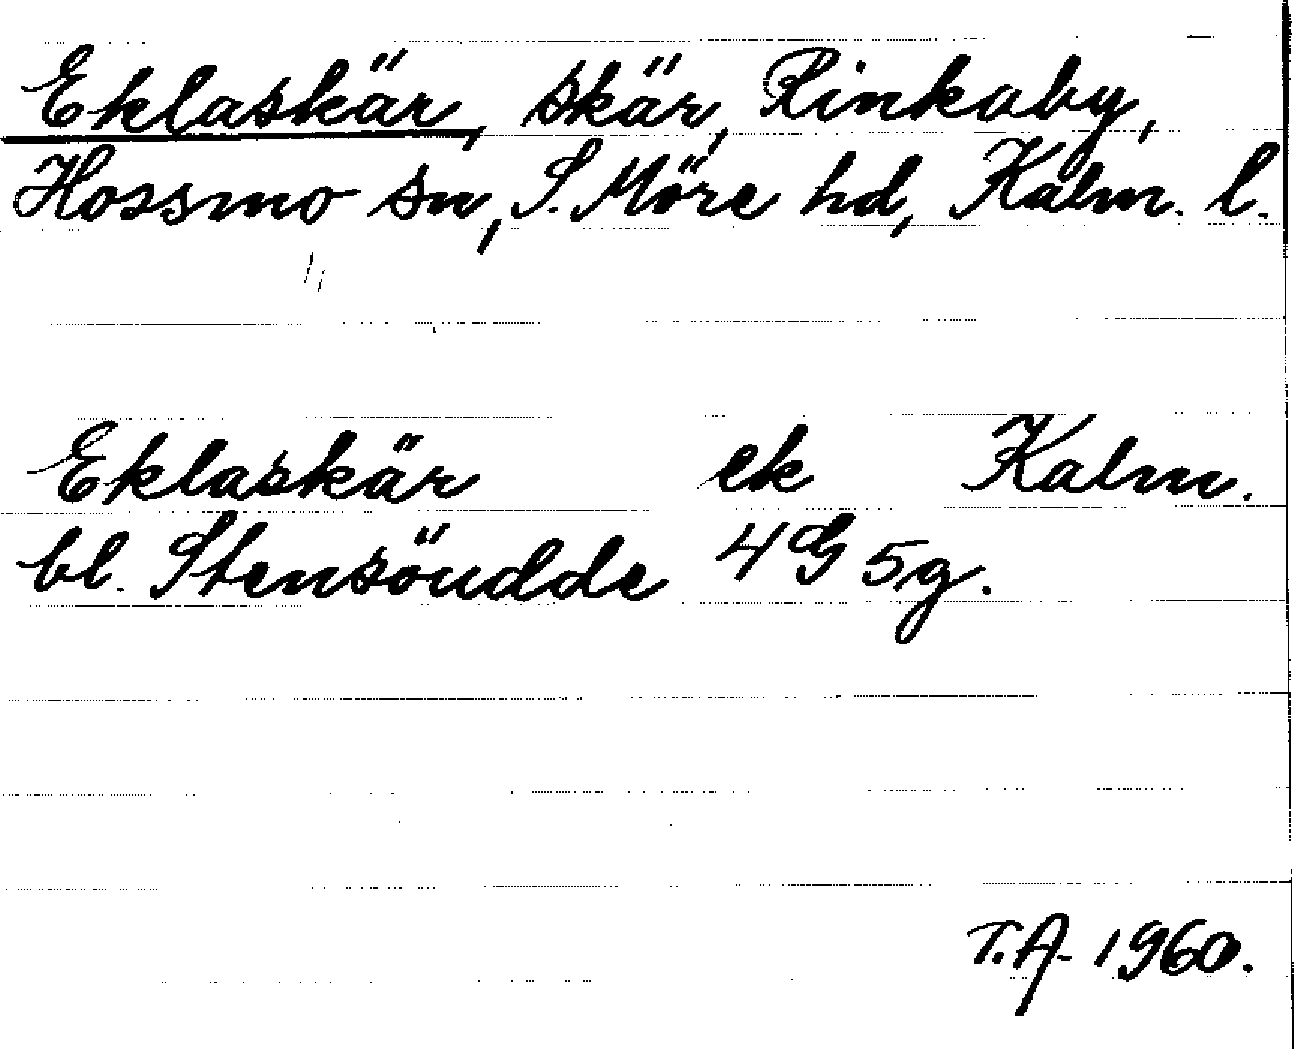 Eklaskär, skär, Rinkaby,
Hossmo sn, S. Möre hd, Kalm. l.
Eklaskär ek Kalm.
bl. Stensöudde 4G5g.
T.A. 1960.